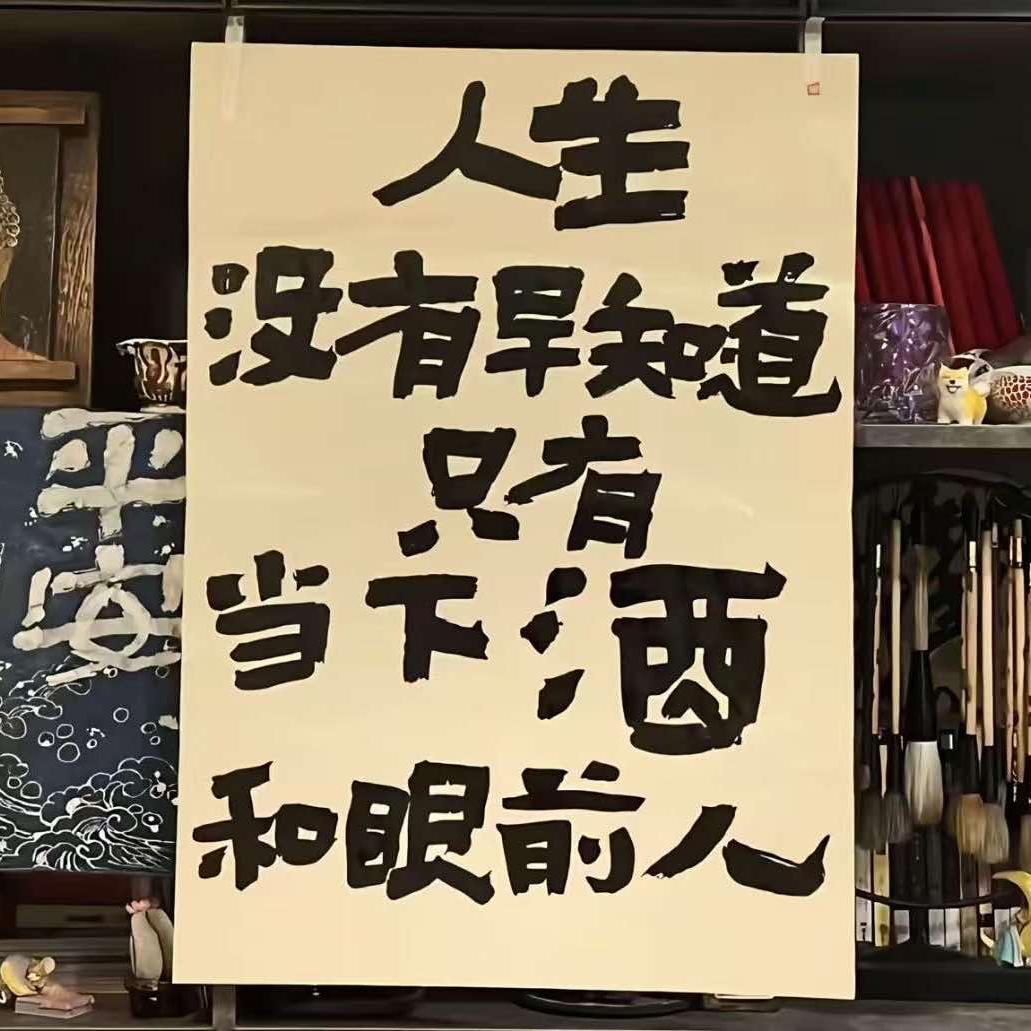 人生
没有早知道
只有
当下酒
和眼前人